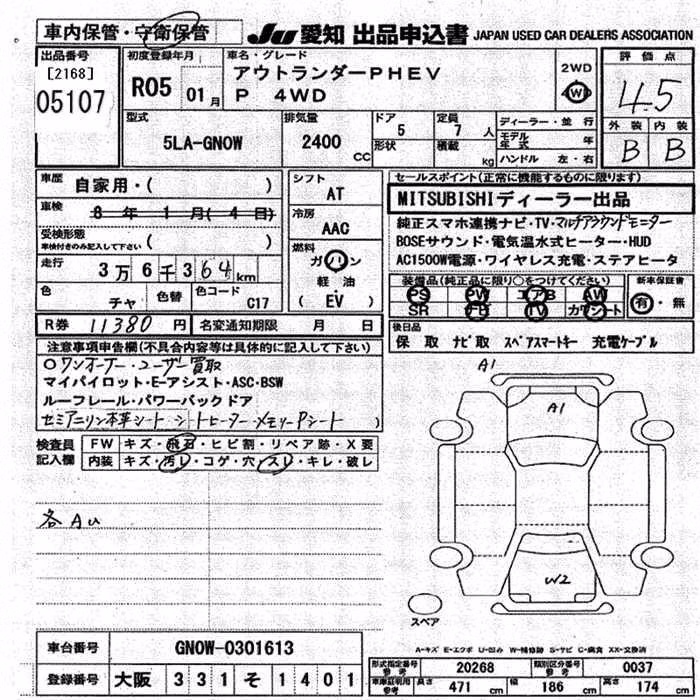 車内保管・守衛保管
JU 愛知 出品申込書 JAPAN USED CAR DEALERS ASSOCIATION
出品番号
[2168]
05107
初度登録年月
R05 01月
車名・グレード
アウトランダーPHEV
P 4WD
2WD
4WD
評価点
4.5
外装 内装
B B
型式
5LA-GN0W
排気量
2400 CC
ドア
5
形状
定員
7 人
積載
kg
ディーラー・並行
モデル年式 年
ハンドル 左・右
車歴
自家用・( )
車検
8年 1月(4日)
受検形態
車検付きのみ記入して下さい ( )
走行
3万6千364km
色
チャ
色替
色コード
C17
シフト
AT
冷房
AAC
燃料
ガソリン
軽油
(EV)
セールスポイント(正常に機能するものに限ります)
MITSUBISHIディーラー出品
純正スマホ連携ナビ・TV・マルチアラウンドモニター
BOSEサウンド・電気温水式ヒーター・HUD
AC1500W電源・ワイヤレス充電・ステアヒータ
装備品(純正品に限り○をつけてください)
PS PW エアB AW
SR ナビ TV カワシート
新車保証書
有・無
R券 11380円 名変通知期限 月 日
後日品
保 取 ナビ取 スペアスマートキー 充電ケーブル
注意事項申告欄(不具合内容等は具体的に記入して下さい)
○ワンオーナー・ユーザー買取
マイパイロット・E-アシスト・ASC・BSW
ルーフレール・パワーバックドア
セミアニリン本革シート・シートヒーター・メモリーPシート )
検査員記入欄
FW キズ・飛石・ヒビ割・リペア跡・X要
内装 キズ・汚レ・コゲ・穴・スレ・キレ・破レ
各AU
A1
A1
W2
スペア
A-キズ E-エクボ U-凹み W-補修跡 S-サビ C-腐食 XX-交換済
車台番号 GN0W-0301613
登録番号 大阪 331 そ 1401
形式指定番号参考 20268 類別区分番号参考 0037
車庫証明用参考 長さ 471cm 幅 186cm 高さ 174cm